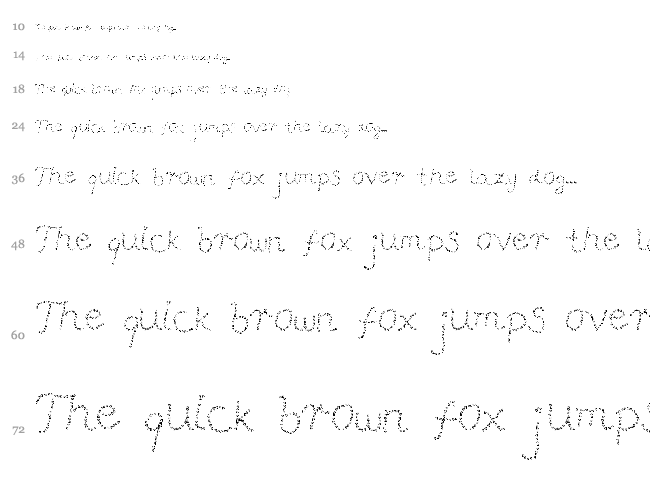 10
14
18 The quick brown fox jumps over the lazy dog...
24 The quick brown fox jumps over the lazy dog...
36 The quick brown fox jumps over the lazy dog...
48 The quick brown fox jumps over the
60 The quick brown fox jumps over
72 The quick brown fox jumps